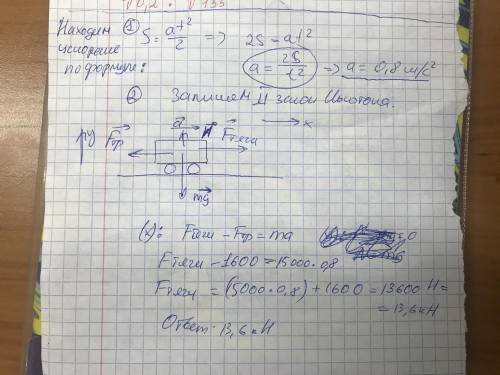 Находим ① S = at²/2 => 2S = at²
ускорение
по формуле: a = 2S/t² => a = 0,8 м/с²
② Запишем II закон Ньютона.
a N x
Fтр Fтяги
mg
(x): Fтяги - Fтр = ma
Fтяги - 1600 = 15000·0,8
Fтяги = (15000·0,8) + 1600 = 13600 Н =
= 13,6 кН
Ответ: 13,6 кН